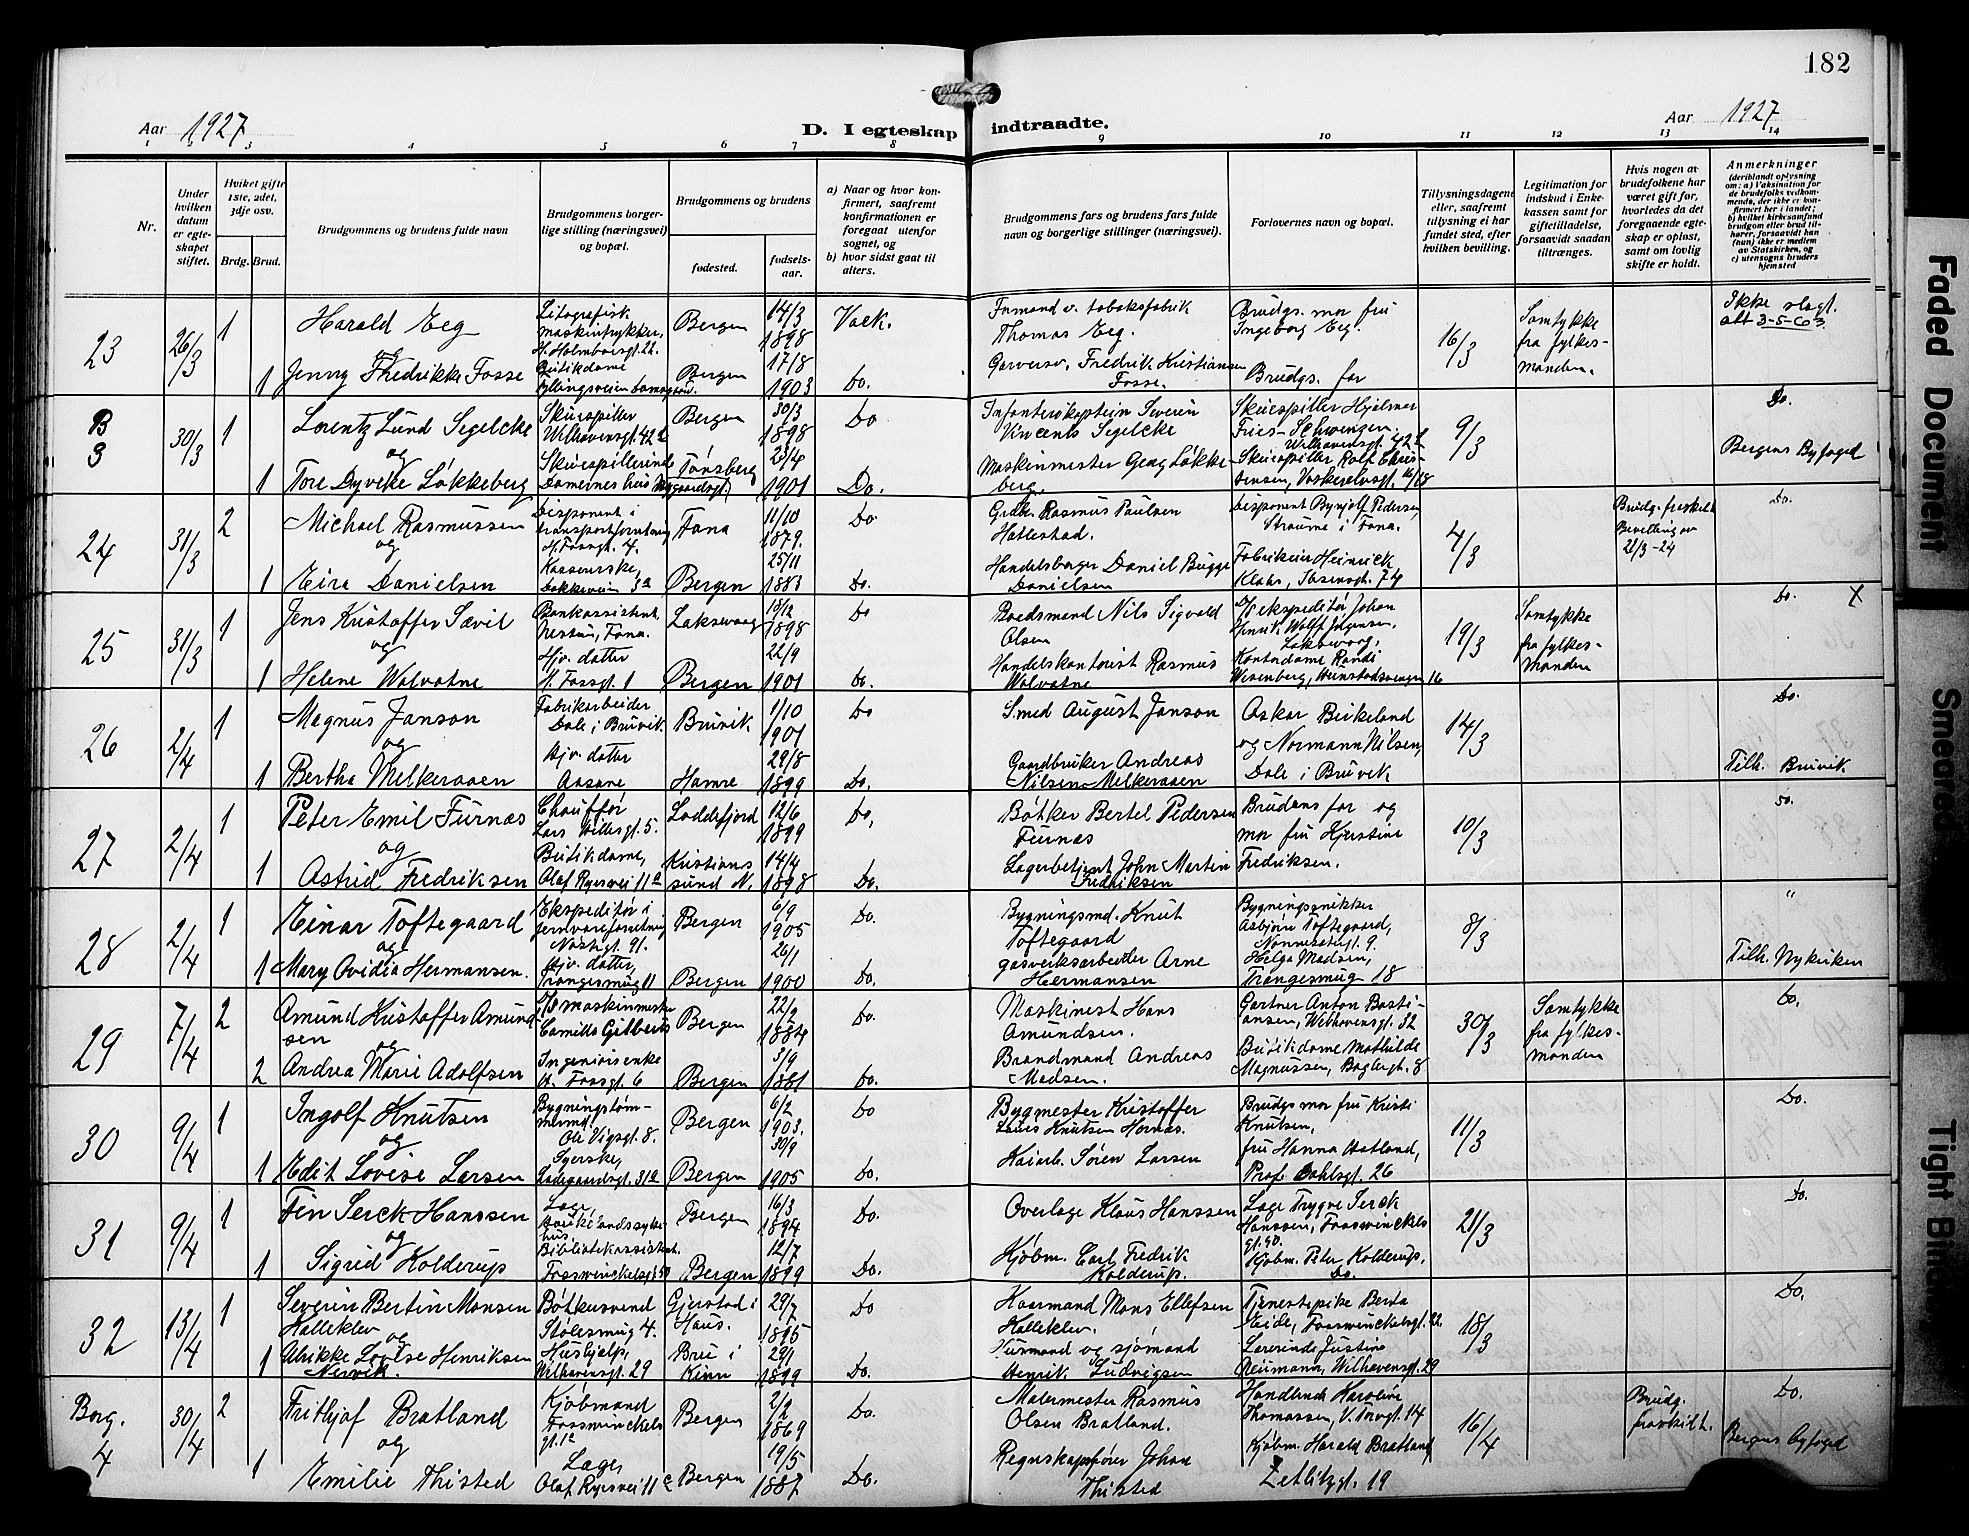 182
Aar 1927
D. I egteskap indtraadte.
Aar 1927
1 2 3 4 5 6 7 8 9 10 11 12 13 14
Nr.
Under hvilken datum er egteskapet stiftet.
Hvilket gifte 1ste, 2det, 3dje osv.
Brdg. Brud.
Brudgommens og brudens fulde navn
Brudgommens borgerlige stilling (næringsvei) og bopæl.
Brudgommens og brudens
fødested.
fødselsaar.
a) Naar og hvor konfirmert, saafremt konfirmationen er foregaat utenfor sognet, og
b) hvor sidst gaat til alters.
Brudgommens fars og brudens fars fulde navn og borgerlige stillinger (næringsvei).
Forlovernes navn og bopæl.
Tillysningsdagene eller, saafremt tillysning ei har fundet sted, efter hvilken bevilling.
Legitimation for indskud i Enkekassen samt for giftetilladelse, forsaavidt saadan tiltrænges.
Hvis nogen av brudefolkene har været gift før, hvorledes da det foregaaende egteskap er opløst, samt om lovlig skifte er holdt.
Anmerkninger (deriblandt oplysning om: a) Vaksination for de brudefolks vedkommende, der ikke er konfirmert her i landet; b) hvilket kirkesamfund brudgom eller brud tilhører, forsaavidt han (hun) ikke er medlem av Statskirken, og c) utensogns bruders hjemsted
23 26/3 1 Harald Eeg
Litografisk maskintrykker,
Bergen 14/3 1898 Vack.
Formand v. tobaksfabrik Thomas Eeg.
Brudgs. mor fru Ingeborg Eeg.
16/3
Samtykke fra fylkesmanden.
Ikke slegt.
alt 3-5-63
og
1 Jenny Fredrikke Fosse
Butikdame
Bergen 17/8 1903 Do.
Fredrik Kristiansen Fosse.
Brudgs. far
B 3 30/3 1 Lorentz Lund Segelcke
Skuespiller Welhavensgt. 42
Bergen 30/3 1898 Do
Infanterikaptein Severin Vincents Segelcke
Skuespiller Hjalmar Fries-Schwenzen.
Welhavensgt. 42
9/3
Do.
Bergens Byfogd
og
1 Tore Dyveke Løkkeberg
Skuespillerinde
Damernes hus
Tønsberg 23/4 1901 Do.
Maskinmester Georg Løkkeberg.
Skuespiller Rolf Christensen,
24 31/3 2 Michael Rasmussen
Disponent i transportforretning
H. Fossgt. 4.
Fana 11/10 1879. Do
Rasmus Paulsen Hatlestad.
Disponent Bynjolf Pedersen,
Straume i Fana.
4/3
Brudg. fraskilt
Bevilling av 21/3-24
Do.
og
1 Eira Danielsen
Kassererske,
Bergen 25/11 1883 Do.
Handelsborger Daniel Bugge Danielsen
Fabrikeier Heinrick Klohs, Ibsensgt. 74
25 31/3 1 Jens Kristoffer Sævil
Bankassistent, Nestun, Fana.
Laksevaag 13/12 1898 Do
Baadsmand Nils Sigvald Olsen
D/S ekspeditør Johan Henrik Wolff Jørgensen, Laksevaag,
19/3
Samtykke fra fylkesmanden
Do. X
og
1 Helene Walvatne
Hjv. datter
H. Fossgt. 1
Bergen 22/9 1901 Do.
Handelskontorist Rasmus Walvatne
Kontordame Randi Wesenberg,
26 2/4 1 Magnus Janson
Fabrikarbeider Dale i Bruvik.
Bruvik 1/10 1901 Do
Smed August Janson
Askar Birkeland og Normann Nilsen, Dale i Bruvik
14/3
Do.
Tilh. Bruvik
og
1 Bertha Melkeraaen
Hjv. datter Aasane
Hamre 29/8 1899 Do.
Gaardbruker Andreas Nilsen Melkeraaen
27 2/4 1 Peter Emil Furnæs
Chauffør
Lars Hillesgt. 5.
Loddefjord 12/6 1899 Do,
Bøtker Bertel Pedersen Furnæs
Brudens far og mor fru Kjerstine Fredriksen.
10/3
Do.
og
1 Astrid Fredriksen
Butikdame,
Olaf Ryesvei 11a
Kristiansund N. 14/4 1898 Do.
Lagerbetjent John Martin Fredriksen
28 2/4 1 Einar Toftegaard
Ekspeditør i jernvareforretning
Nøstegt. 91.
Bergen 6/9 1905 Do.
Bygningsmd. Knut Toftegaard
Bygningssnikker Asbjørn Toftegaard,
Nonnesetergt. 9.
8/3
"
Tilh. Nykirken
og
1 Mary Ovidia Hermansen.
Hjv. datter,
Trangesmug 11
Bergen 26/1 1900 Do.
gasverksarbeider Arne Hermansen
Helga Madsen,
Trangesmug 18
29 7/4 2 Amund Kristoffer Amundsen
D/S maskinmester
Bergen 22/2 1884 Do.
Maskinest Hans Amundsen.
Gartner Anton Bastiansen, Welhavensgt. 32
30/3
Samtykke fra fylkesmanden
Do.
og
2 Andrea Marie Adolfsen
Ingeniørsenke
H. Fossgt. 6
Bergen 3/9 1881 Do.
Brandmand Andreas Madsen.
Butikdame Mathilde Magnussen, Baglergt. 8
30 9/4 1 Ingolf Knutsen
Bygningstømmermd.
Ole Vigsgt. 8.
Bergen 6/2 1903. Do
Bygmester Kristoffer Louis Knutsen Hornæs.
Brudgs mor fru Kristi Knutsen,
11/3
Do.
og
1 Edit Lovise Larsen
Syerske,
Ladegaardsgt. 31a
Bergen 30/9 1905 Do.
Kaiarb. Søren Larsen
fru Hanna Hatland,
Prof. Dahlsgt. 26
31 9/4 1 Fin Serck Hanssen
Læge,
Haukelandssykehus.
Bergen 16/3 1894 Do.
Overlæge Klaus Hanssen
Læge Trygve Serck Hanssen, Fosswinckelsgt. 50.
21/3
Do.
og
1 Sigrid Kolderup
Bibliotekassistent.
Fosswinckelsgt. 50
Bergen 12/7 1899 Do.
Kjøbm. Carl Fredrik Kolderup.
Kjøbm. Peter Kolderup,
Do.
32 13/4 1 Severin Bertin Monsen Halleklev
Bøtkersvend
Stølesmug 4.
Gjerstad i Haus. 29/7 1895 Do
Haarmand Mons Ellefsen Halleklev.
Tjenestepike Berta Heide, Fosswinckelsgt. 22.
18/3
Do,
og
1 Ulrikke Lovise Henriksen Nervik.
Hushjelp,
Welhavensgt. 29
Bru i Kinn 29/1 1899 Do.
Husmand og sjømand Henrik Ludvigsen
Lærerinde Justine Neumann, Welhavensgt. 29
Borg. 4 30/4 2 Frithjof Bratland
Kjøbmand
Fosswinckelsgt. 1a
Bergen 2/2 1869 Do.
Malermester Rasmus Olsen Bratland.
Handlende Karoline Thomassen, V. Torvgt. 14
16/4
Brudg. fraskilt.
Do.
Bergens byfogd
og
1 Emilie Thisted
Læge,
Olaf Ryesvei 11c
Bergen 19/5 1887 Do.
Regnskapsfører Johan Thisted
Kjøbm. Harald Bratland
Zetlitzgt. 19
Faded Document
Smeared
Tight Bind